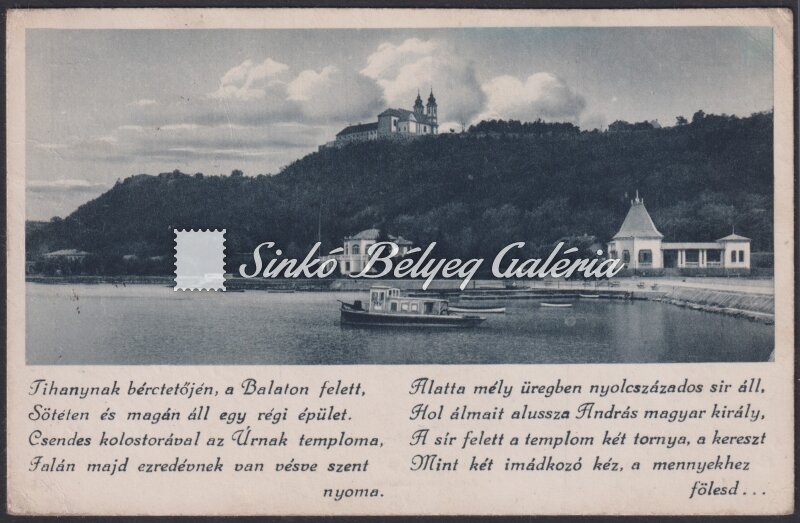 Sinkó Bélyeg Galéria
Tihanynak bérctetőjén, a Balaton felett,
Sötéten és magán áll egy régi épület.
Csendes kolostorával az Úrnak temploma,
Falán majd ezredévnek van vésve szent
nyoma.
Alatta mély üregben nyolcszázados sir áll,
Hol álmait alussza András magyar király,
A sír felett a templom két tornya, a kereszt
Mint két imádkozó kéz, a mennyekhez
fölesd...